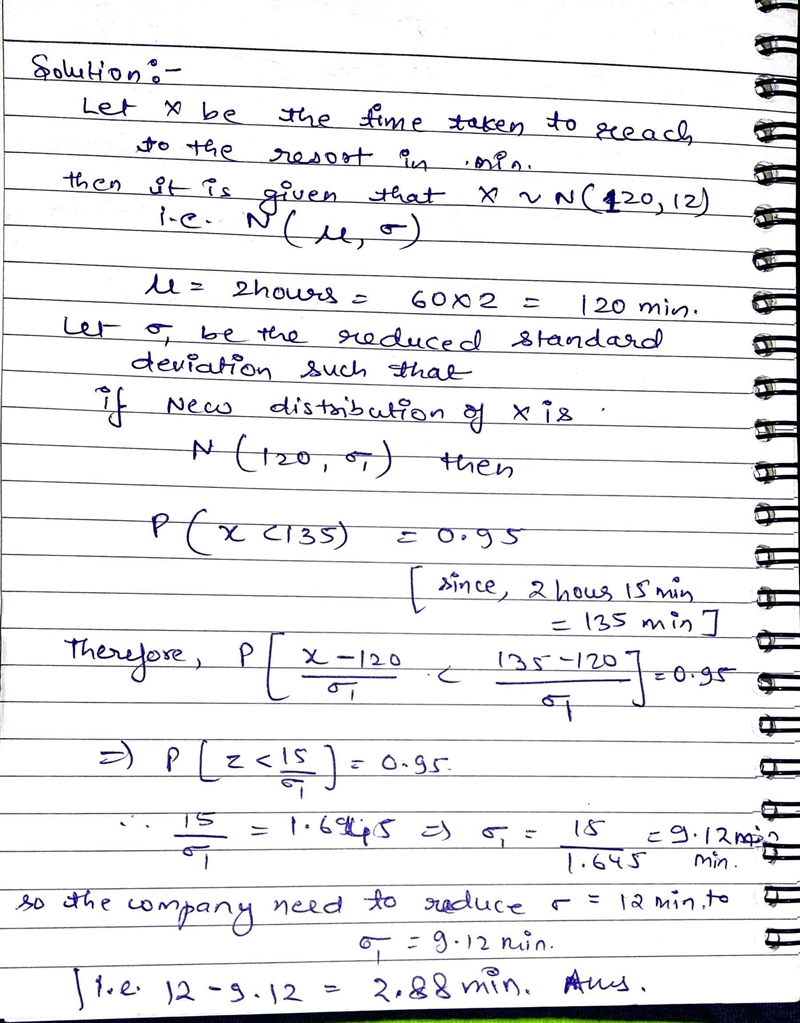 Solution :-
Let X be the time taken to reach
to the resort in min.
then it is given that X ~ N(120, 12)
i.e. N(μ, σ)
μ = 2hours = 60×2 = 120 min.
Let σ₁ be the reduced standard
deviation such that
if New distribution of X is
N(120, σ₁) then
P(x < 135) = 0.95
[since, 2 hour 15 min
= 135 min]
Therefore, P[(x-120)/σ₁ < (135-120)/σ₁] = 0.95
=> P[z < 15/σ₁] = 0.95.
∴ 15/σ₁ = 1.645 => σ₁ = 15/1.645 = 9.12 min.
so the company need to reduce σ = 12 min. to
σ₁ = 9.12 min.
i.e. 12 - 9.12 = 2.88 min. Ans.